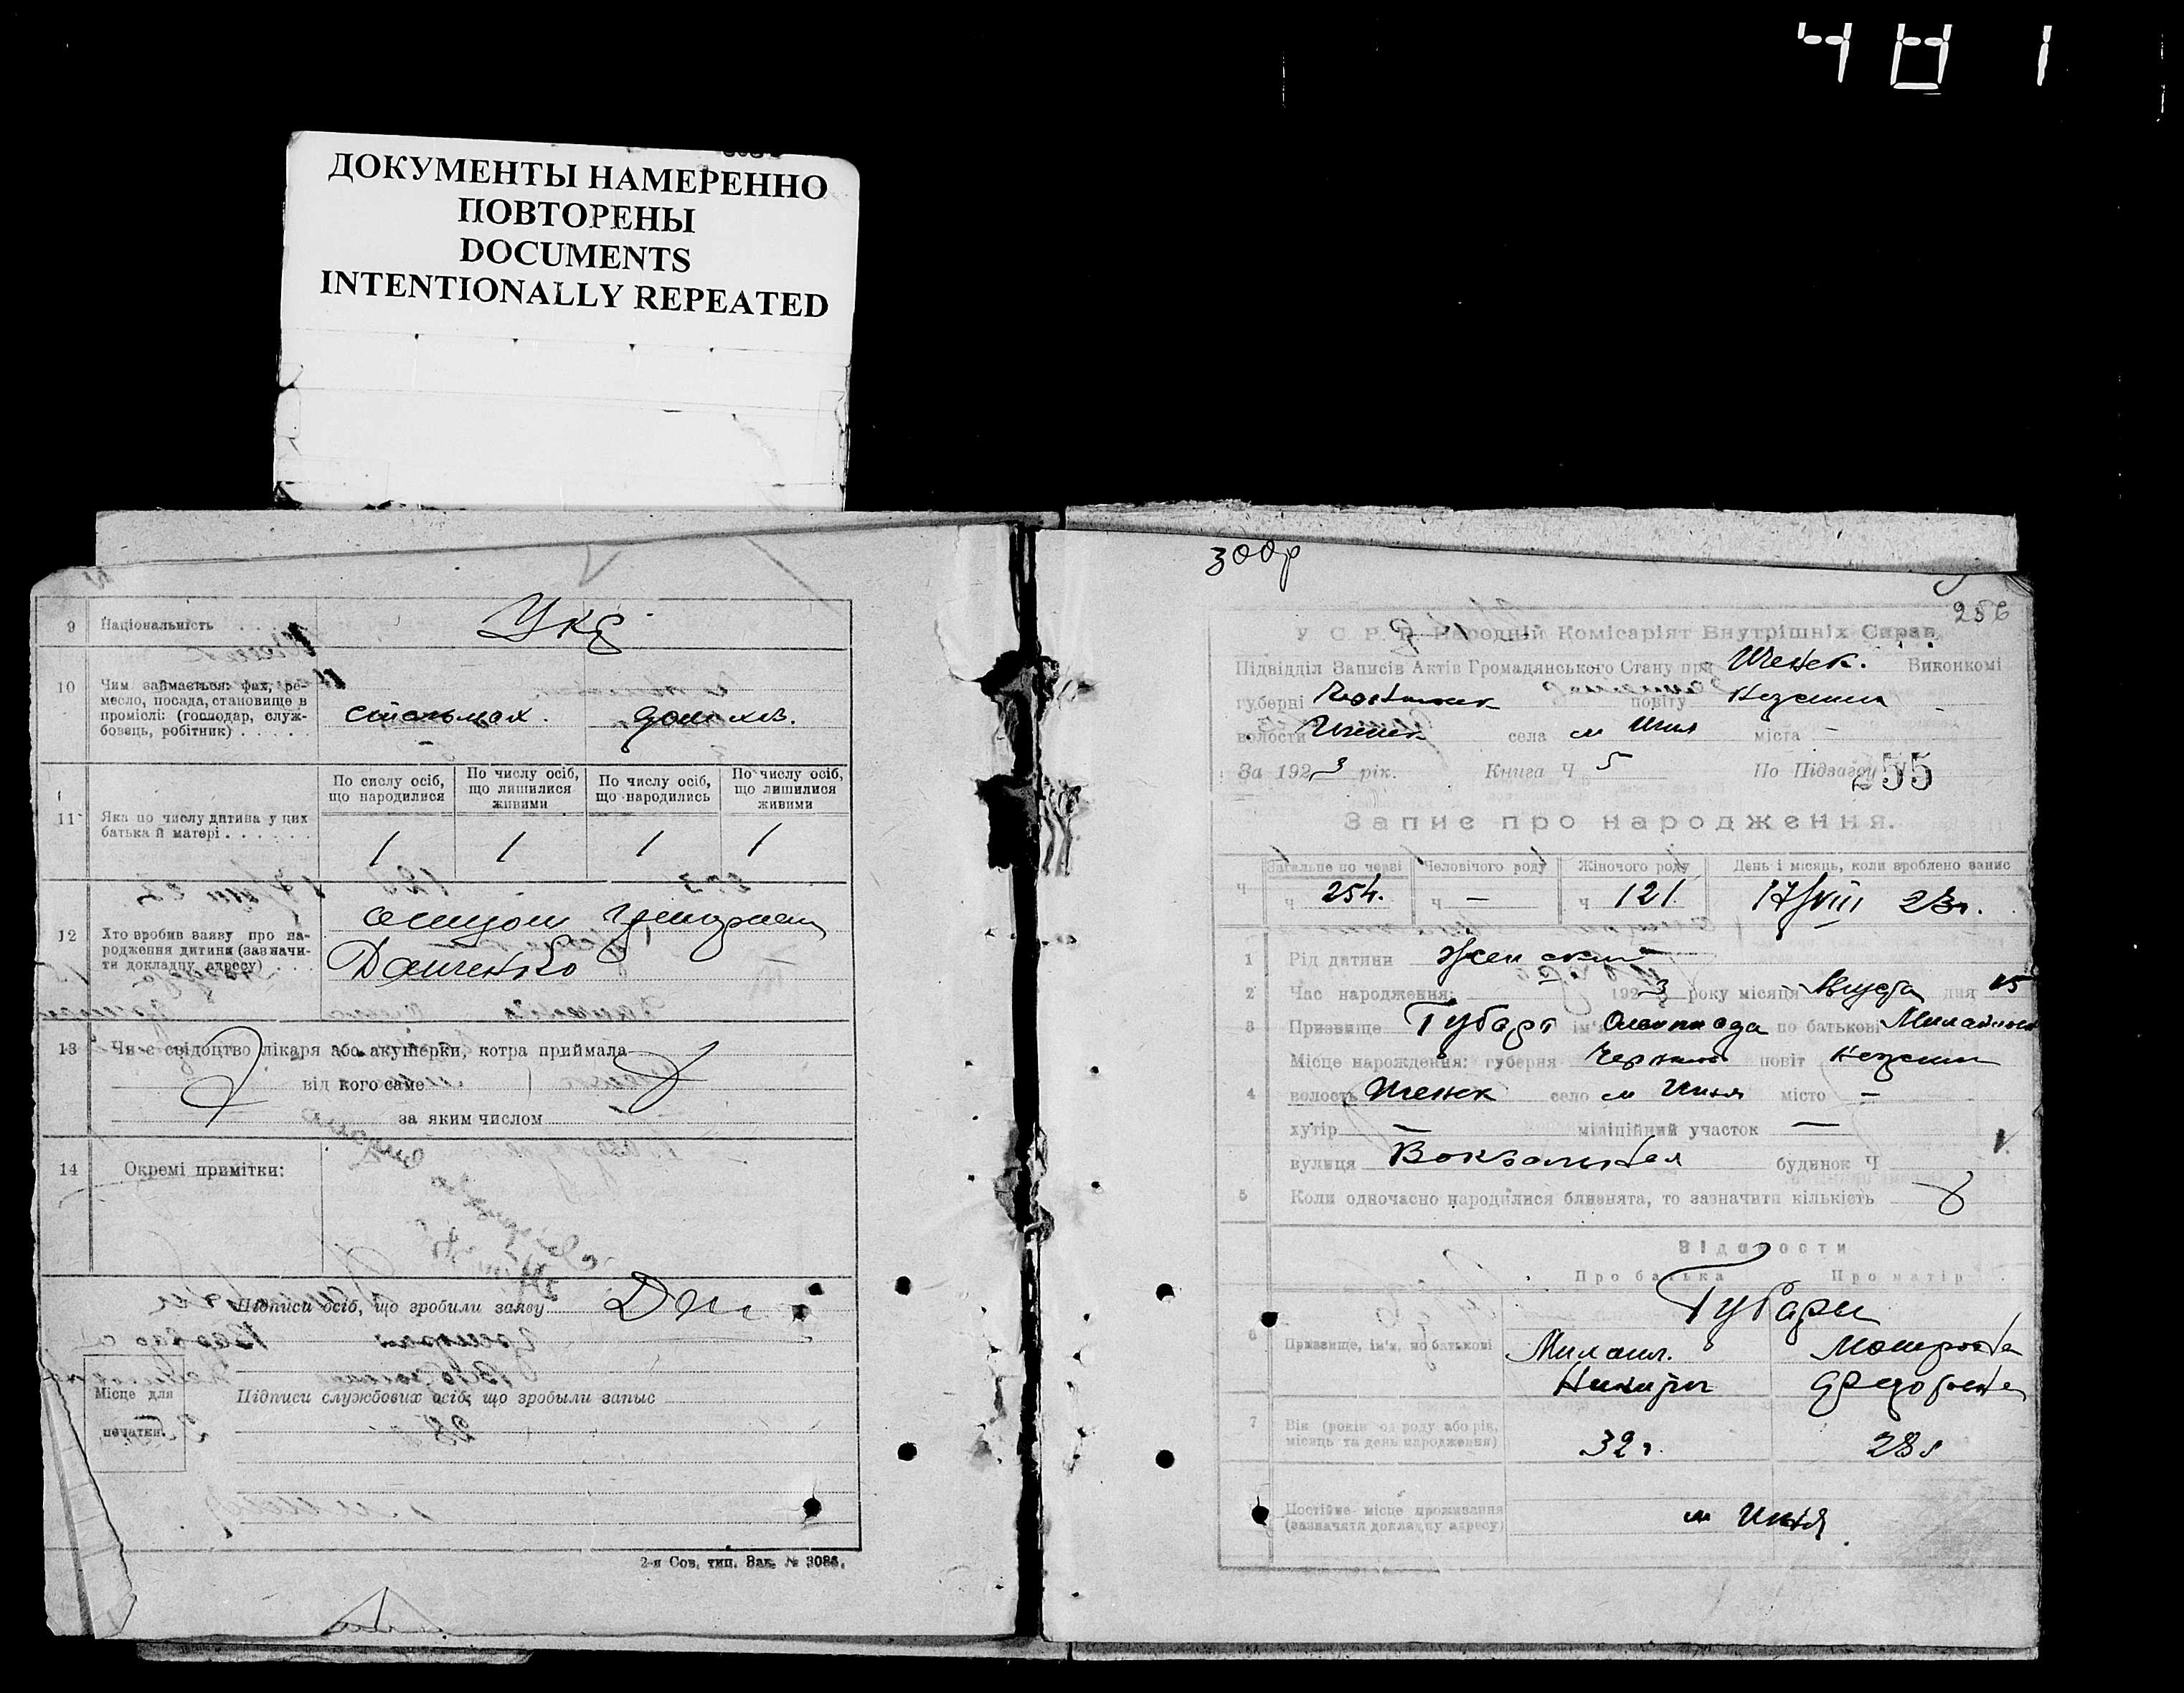 481
ДОКУМЕНТЫ НАМЕРЕННО
ПОВТОРЕНЫ
DOCUMENTS
INTENTIONALLY REPEATED
9 Національність
Укр
10 Чим займається: фах, ре-
месло, посада, становище в
проміслі: (господар, служ-
бовець, робітник)
стельмах. дом хоз.
По сислу осіб, що народилися
По числу осіб, що лишилися живими
По числу осіб, що народились
По числу осіб, що лишилися живими
11 Яка по числу дитина у цих
батька й матері
1 1 1 1
12 Хто вробив заяву про на-
родження дитини (зазначи-
ти докладну адресу)
Данченко
13 Чи є свідоцтво лікаря або акушерки, котра приймала
від кого саме
за яким числом
14 Окремі примітки:
Підписи осіб, що зробили заяву
Місце для
печатки.
Підписи службових осіб, що зробыли запыс
2-я Сов. тип. Зак. № 3086.
300р
256
У. С. Р. Р. Народній Комісаріят Внутрішніх Справ
Підвідділ Записів Актів Громадянського Стану при Иченск. Виконкомі
губерні повіту Нежин
волости Иченск села м Ичня міста -
За 1923 рік. Книга Ч 5 По Підвагоу 255
Запис про народження.
Загальне по черзі Человічого роду Жіночого роду День і місяць, коли вроблено запис
ч 254. ч — ч 121 17/VIII 23г.
1 Рід дитини Женский
2 Час народження: 1923 року місяця Августа дня 15
3 Призвище Губарь ім'я Олимпиада по батькові
Місце народження: губерня Черниг повіт Нежин
4 волость Иченск село м Ичня місто —
хутір — міліційний участок —
вулиця Вокзальная будинок Ч
5 Коли одночасно народилися близнята, то зазначити кількість
Відомости
Про батька Про матір
Губари
6 Призвище, ім'я, по батькові Михаил. Мотрона
Никифор Федоровна
7 Вік (років од роду або рік,
місяць та день народження)
32 г. 28 г
Постійне місце проживання
(зазначити докладну адресу)
м Ичня